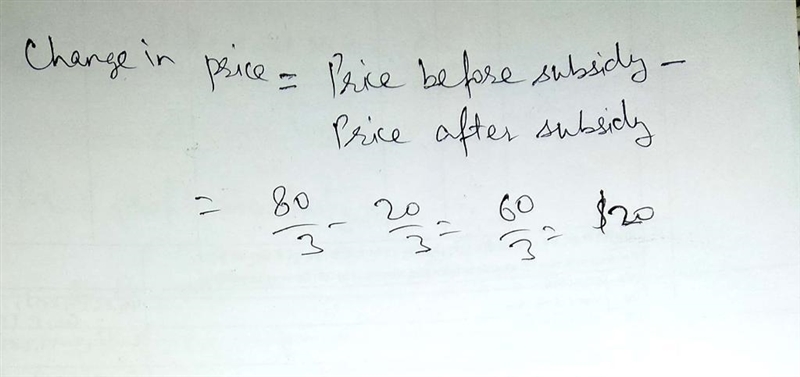 Change in price = Price before subsidy -
Price after subsidy
= 80/3 - 20/3 = 60/3 = $20